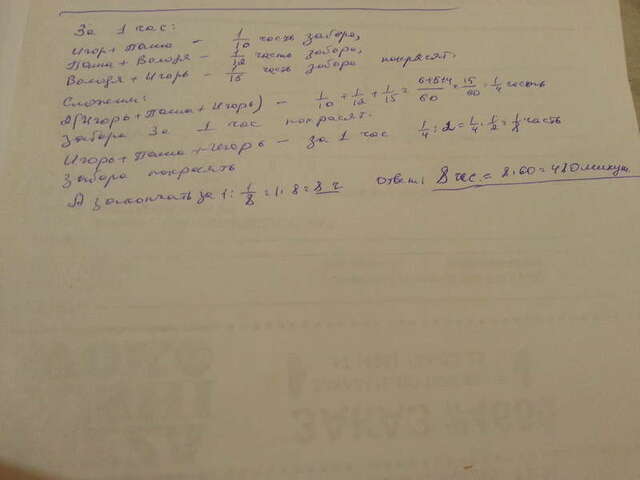 За 1 час:
Игорь + Паша – 1/10 часть забора,
Паша + Володя – 1/12 часть забора,
Володя + Игорь – 1/15 часть забора покрасят.
Сложим:
2(Игорь + Паша + Игорь) – 1/10 + 1/12 + 1/15 = 6+5+4/60 = 15/60 = 1/4 часть
забора за 1 час покрасят.
Игорь + Паша + Игорь – за 1 час 1/4 : 2 = 1/4 · 1/2 = 1/8 часть
забора покрасят
А закончат за 1 : 1/8 = 1 · 8 = 8 ч
Ответ: 8 час. = 8·60 = 480 минут.
ЗАКАЗ